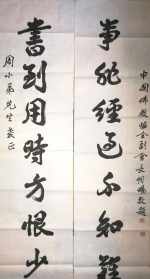 先生教正
書到用時方恨少
事非經過不知難
中國佛教協會副會長明暘敬題